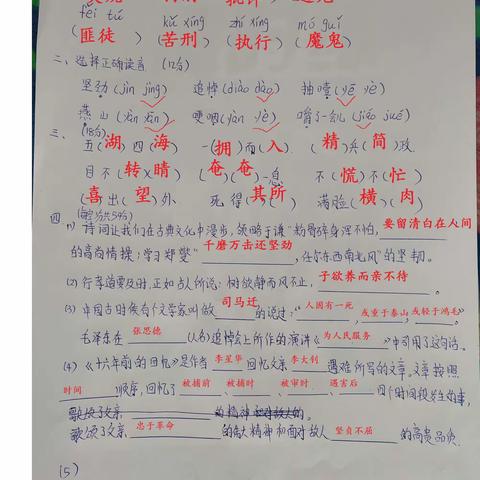 fěi tú kǔ xíng zhí xíng mó guǐ
(匪徒) (苦刑) (执行) (魔鬼)
二、选择正确读音 (12分)
坚劲(jìn jìng) 追悼(diào dào) 抽噎(yē yè)
燕山(yàn yān) 哽咽(yàn yè) 嚼了一会儿(jiáo jué)
三、(18分)
五(湖)四(海) 一(拥)而(入) (精)兵(简)政
目不(转)(睛) (奄)(奄)一息 不(慌)不(忙)
(喜)出(望)外 死得(其所) 满脸(横)(肉)
四、(每空分共54分)
(1) 诗词让我们在古典文化中漫步,领略于谦"粉骨碎身浑不怕,要留清白在人间
的高尚情操;学习郑燮"千磨万击还坚劲,任尔东西南北风"的坚韧。
(2) 行孝道要及时,正如古人所说:树欲静而风不止,子欲养而亲不待。
(3) 中国古时候有个文学家叫做司马迁的说过:"人固有一死,或重于泰山,或轻于鸿毛"
毛泽东在张思德(人名)追悼会上所作的演讲《为人民服务》中引用了这句话。
(4)《十六年前的回忆》是作者李星华回忆父亲李大钊遇难所写的文章。文章按照
时间顺序,回忆了被捕前、被捕时、被审时、遇害后四个时间段发生的事,
歌颂了父亲忠于革命的伟大精神和面对敌人坚贞不屈的高贵品质.
(5)